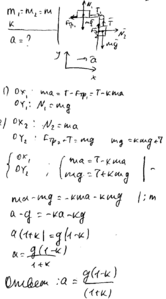 m₁=m₂=m
k
a=?
N₁
T
Fтр₁
mg
N₂
T
mg
y
x
a
1) OX₁: ma=T-Fтр₁=T-kma
OY₁: N₁=mg
2) OX₂: N₂=ma
OY₂: Fтр₂+T=mg mg=kmg+T
{ OX₁ { ma=T-kma
OY₂ ; mg=T+kmg
ma-mg=-kma-kmg |:m
a-g=-ka-kg
a(1+k)=g(1-k)
a=g(1-k)/1+k
Ответ: a=g(1-k)/(1+k)